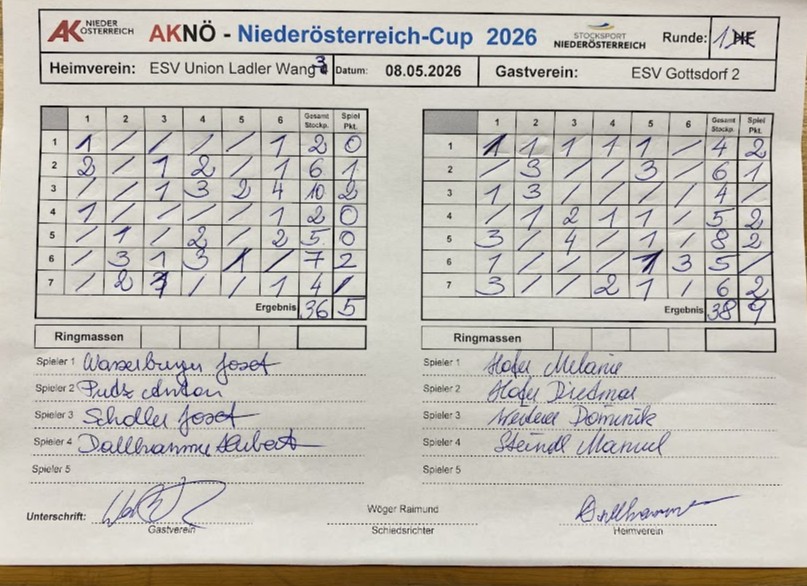 AK NIEDER ÖSTERREICH AKNÖ - Niederösterreich-Cup 2026 STOCKSPORT NIEDERÖSTERREICH Runde: 1
Heimverein: ESV Union Ladler Wang 3 Datum: 08.05.2026 Gastverein: ESV Gottsdorf 2
1 2 3 4 5 6 Gesamt Stockp. Spiel Pkt.
1 1 / / / / 1 2 0
2 2 / 1 2 / 1 6 1
3 / / 1 3 2 4 10 2
4 1 / / / / 1 2 0
5 / 1 / 2 / 2 5 0
6 / 3 1 3 / / 7 2
7 / 2 1 / / 1 4 /
Ergebnis 36 5
1 2 3 4 5 6 Gesamt Stockp. Spiel Pkt.
1 1 1 1 1 1 / 4 2
2 / 3 / / 3 / 6 1
3 1 3 / / / / 4 /
4 / 1 2 1 1 / 5 2
5 3 / 4 / 1 / 8 2
6 1 / / / 1 3 5 /
7 3 / / 2 1 / 6 2
Ergebnis 38 9
Ringmassen
Spieler 1 Wasserburger Josef
Spieler 2 Putz Anton
Spieler 3 Scholler Josef
Spieler 4 Dallhammer Hubert
Spieler 5
Ringmassen
Spieler 1 Hofer Melanie
Spieler 2 Hofer Dietmar
Spieler 3 Dominik
Spieler 4 Steindl Manuel
Spieler 5
Unterschrift:
Gastverein
Wöger Raimund
Schiedsrichter
Dallhammer
Heimverein